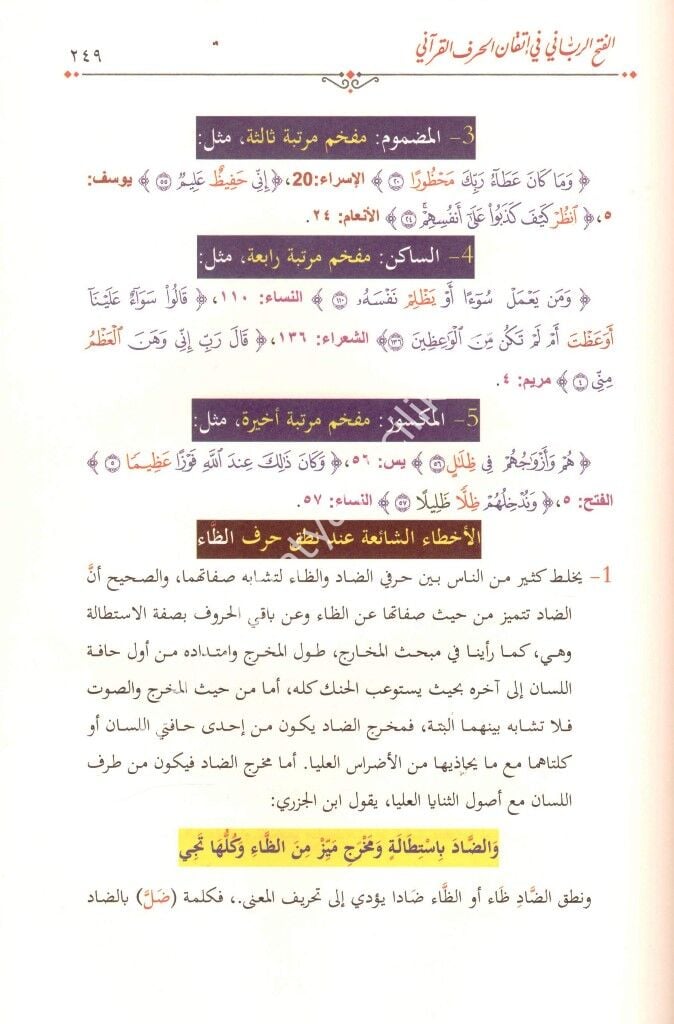 الفتح الرباني في إتقان الحرف القرآني
٢٤٩
3- المضموم: مفخم مرتبة ثالثة، مثل:
﴿ وَمَا كَانَ عَطَاءُ رَبِّكَ مَحْظُورًا ٢٠ ﴾ الإسراء:20، ﴿ إِنِّي حَفِيظٌ عَلِيمٌ ٥٥ ﴾ يوسف:
٥، ﴿ ٱنظُرْ كَيْفَ كَذَبُواْ عَلَىٰٓ أَنفُسِهِمْ ٢٤ ﴾ الأنعام: ٢٤ .
4- الساكن: مفخم مرتبة رابعة، مثل:
﴿ وَمَن يَعْمَلْ سُوٓءًا أَوْ يَظْلِمْ نَفْسَهُۥ ١١٠ ﴾ النساء: ١١٠، ﴿ قَالُواْ سَوَآءٌ عَلَيْنَآ
أَوَعَظْتَ أَمْ لَمْ تَكُن مِّنَ ٱلْوَٰعِظِينَ ١٣٦ ﴾ الشعراء: ١٣٦، ﴿ قَالَ رَبِّ إِنِّي وَهَنَ ٱلْعَظْمُ
مِنِّي ٤ ﴾ مريم: ٤ .
5- المكسور: مفخم مرتبة أخيرة، مثل:
﴿ هُمْ وَأَزْوَٰجُهُمْ فِي ظِلَٰلٍ ٥٦ ﴾ يس: ٥٦، ﴿ وَكَانَ ذَٰلِكَ عِندَ ٱللَّهِ فَوْزًا عَظِيمًا ٥ ﴾
الفتح: ٥، ﴿ وَنُدْخِلُهُمْ ظِلًّا ظَلِيلًا ٥٧ ﴾ النساء: ٥٧.
الأخطاء الشائعة عند نطق حرف الظَّاء
1- يخلط كثير من الناس بين حرفي الضاد والظاء لتشابه صفاتهما، والصحيح أنَّ
الضاد تتميز من حيث صفاتها عن الظاء وعن باقي الحروف بصفة الاستطالة
وهي، كما رأينا في مبحث المخارج، طول المخرج وامتداده من أول حافة
اللسان إلى آخره بحيث يستوعب الحنك كله، أما من حيث المخرج والصوت
فلا تشابه بينهما البتة، فمخرج الضاد يكون من إحدى حافتي اللسان أو
كلتاهما مع ما يحاذيها من الأضراس العليا. أما مخرج الضاد فيكون من طرف
اللسان مع أصول الثنايا العليا، يقول ابن الجزري:
وَالضَّادَ بِاسْتِطَالَةٍ وَمَخْرَجِ مَيِّزْ مِنَ الظَّاءِ وَكُلُّهَا تَجِي
ونطق الضَّادِ ظَاء أو الظَّاء ضَادا يؤدي إلى تحريف المعنى.، فكلمة (ضَلَّ) بالضاد